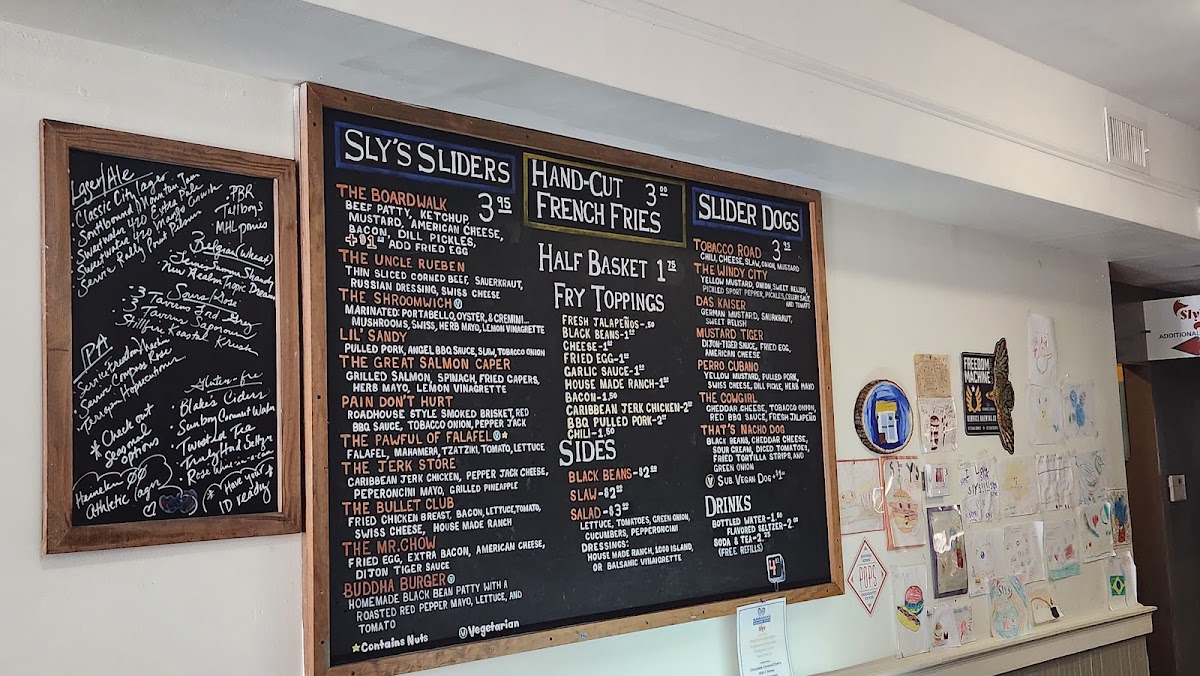 Lager/Ale
Classic City Lager
Southbound Mountain Jam
Sweetwater 420 Extra Pale
Sweetwater G20 Mango Gowith
Service, Rally Point Pilsner
PBR
Tallboys
MHL ponies
Belgian (wheat)
New Realm Tropic Dream
Stillfire Koastal Krush
IPA
* Check out
seasonal
options
Heineken
Athletic Lager
Gluten-free
Blake's Ciders
Twisted Tea
Truly Hard Seltzer
* Have your *
ID ready
SLY'S SLIDERS
3.95
THE BOARDWALK
BEEF PATTY, KETCHUP,
MUSTARD, AMERICAN CHEESE,
BACON, DILL PICKLES,
+$1 ADD FRIED EGG
THE UNCLE RUEBEN
THIN SLICED CORNED BEEF, SAUERKRAUT,
RUSSIAN DRESSING, SWISS CHEESE
THE SHROOMWICH V
MARINATED: PORTABELLO, OYSTER, & CREMINI...
MUSHROOMS, SWISS, HERB MAYO, LEMON VINAGRETTE
LIL' SANDY
PULLED PORK, ANGEL BBQ SAUCE, SLAW, TOBACCO ONION
THE GREAT SALMON CAPER
GRILLED SALMON, SPINACH, FRIED CAPERS,
HERB MAYO, LEMON VINAGRETTE
PAIN DON'T HURT
ROADHOUSE STYLE SMOKED BRISKET, RED
BBQ SAUCE, TOBACCO ONION, PEPPER JACK
THE PAWFUL OF FALAFEL V ★
FALAFEL, MAHAMERA, TZATZIKI, TOMATO, LETTUCE
THE JERK STORE
CARIBBEAN JERK CHICKEN, PEPPER JACK CHEESE,
PEPERONCINI MAYO, GRILLED PINEAPPLE
THE BULLET CLUB
FRIED CHICKEN BREAST, BACON, LETTUCE, TOMATO,
SWISS CHEESE, HOUSE MADE RANCH
THE MR. CHOW
FRIED EGG, EXTRA BACON, AMERICAN CHEESE,
DIJON TIGER SAUCE
BUDDHA BURGER V
HOMEMADE BLACK BEAN PATTY WITH A
ROASTED RED PEPPER MAYO, LETTUCE, AND
TOMATO
★Contains Nuts
V Vegetarian
HAND-CUT 3.00
FRENCH FRIES
HALF BASKET 1.75
FRY TOPPINGS
FRESH JALAPEÑOS-.50
BLACK BEANS-1
CHEESE-1
FRIED EGG-1
GARLIC SAUCE-1
HOUSE MADE RANCH-1
BACON-1.50
CARIBBEAN JERK CHICKEN-2
BBQ PULLED PORK-2
CHILI-1.50
SIDES
BLACK BEANS-$2
SLAW-$2
SALAD-$3
LETTUCE, TOMATOES, GREEN ONION,
CUCUMBERS, PEPPERONCINI
DRESSINGS:
HOUSE MADE RANCH, 1000 ISLAND,
OR BALSAMIC VINAIGRETTE
SLIDER DOGS
TOBACCO ROAD 3.95
CHILI, CHEESE, SLAW, ONION, MUSTARD
THE WINDY CITY
YELLOW MUSTARD, ONION, SWEET RELISH,
PICKLED SPORT PEPPER, PICKLES, CELERY SALT,
AND TOMATO
DAS KAISER
GERMAN MUSTARD, SAURKRAUT,
SWEET RELISH
MUSTARD TIGER
DIJON-TIGER SAUCE, FRIED EGG,
AMERICAN CHEESE
PERRO CUBANO
YELLOW MUSTARD, PULLED PORK,
SWISS CHEESE, DILL PICKLE, HERB MAYO
THE COWGIRL
CHEDDAR CHEESE, TOBACCO ONION,
RED BBQ SAUCE, FRESH JALAPEÑO
THAT'S NACHO DOG
BLACK BEANS, CHEDDAR CHEESE,
SOUR CREAM, DICED TOMATOES,
FRIED TORTILLA STRIPS, AND
GREEN ONION
V SUB VEGAN DOG-$1
DRINKS
BOTTLED WATER-1.50
FLAVORED SELTZER-2.00
SODA & TEA-2.25
(FREE REFILLS)
FREEDOM
MACHINE
POPS
Sly
ADDITIONAL